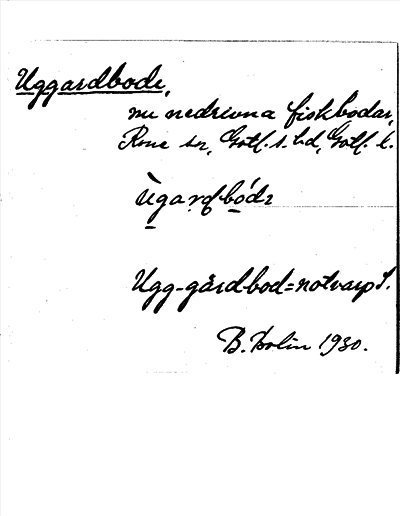 Uggardbode,
nu nedrivna fiskbodar,
Rone sn, Gotl. s. hd, Gotl. l.
Ugg-gård-bod = notvarp
B. Bolin 1930.